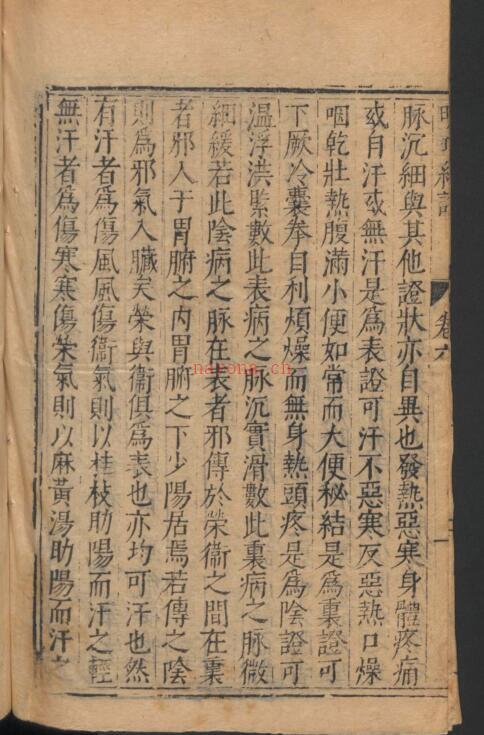 卷六
脉沉細與其他證狀亦自異也發熱惡寒身體疼痛
或自汗或無汗是爲表證可汗不惡寒反惡熱口燥
咽乾壯熱腹滿小便如常而大便秘結是爲裏證可
下厥冷囊拳自利煩燥而無身熱頭疼是爲陰證可
温浮洪緊數此表病之脉沉實滑數此裏病之脉微
細緩若此陰病之脉在表者邪傳於榮衞之間在裏
者邪入于胃腑之内胃腑之下少陽居焉若傳之陰
則爲邪氣入臟矣榮與衞俱爲表也亦均可汗也然
有汗者爲傷風風傷衞氣則以桂枝助陽而汗之輕
無汗者爲傷寒寒傷榮氣則以麻黃湯助陽而汗之
nayona.cn